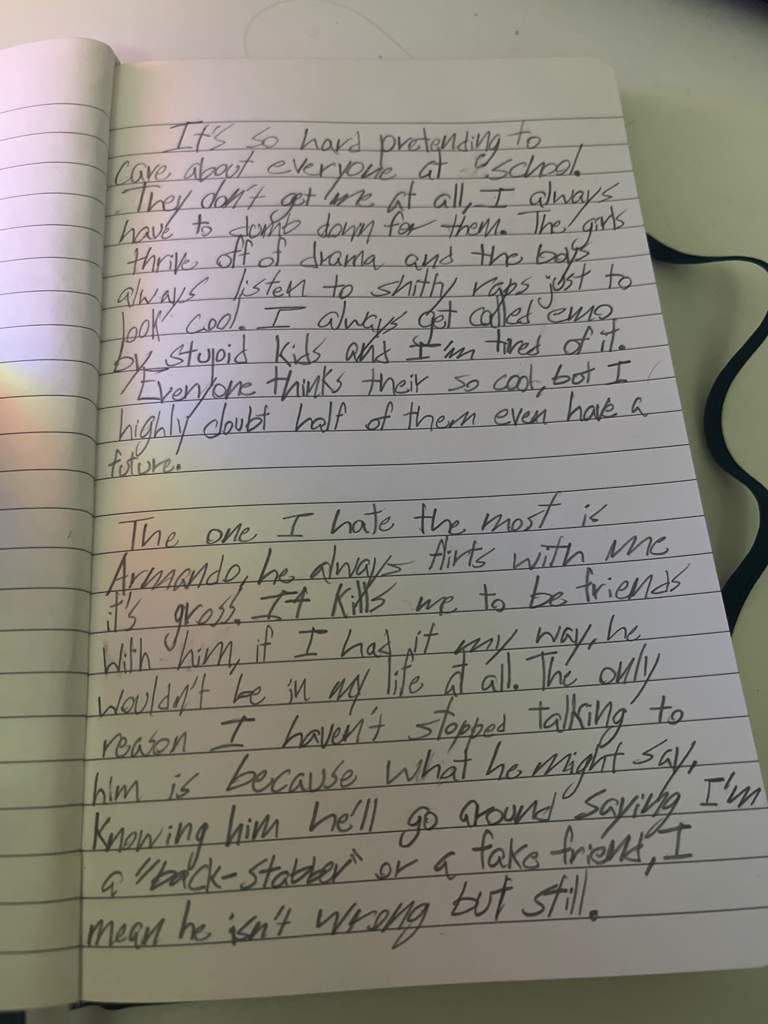 It's so hard pretending to
care about everyone at school.
They don't get me at all, I always
have to dumb down for them. The girls
thrive off of drama and the boys
always listen to shitty raps just to
look cool. I always get called emo
by stupid kids and I'm tired of it.
Everyone thinks their so cool, but I
highly doubt half of them even have a
future.
The one I hate the most is
Armando, he always flirts with me
it's gross. It kills me to be friends
with him, if I had it my way, he
wouldn't be in my life at all. The only
reason I haven't stopped talking to
him is because what he might say,
knowing him he'll go around saying I'm
a "back-stabber" or a fake friend, I
mean he isn't wrong but still.